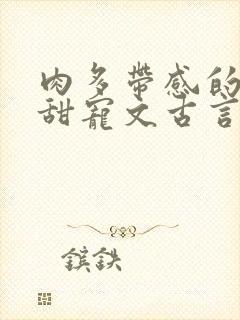 肉多带感的
甜宠文古言
镔铁